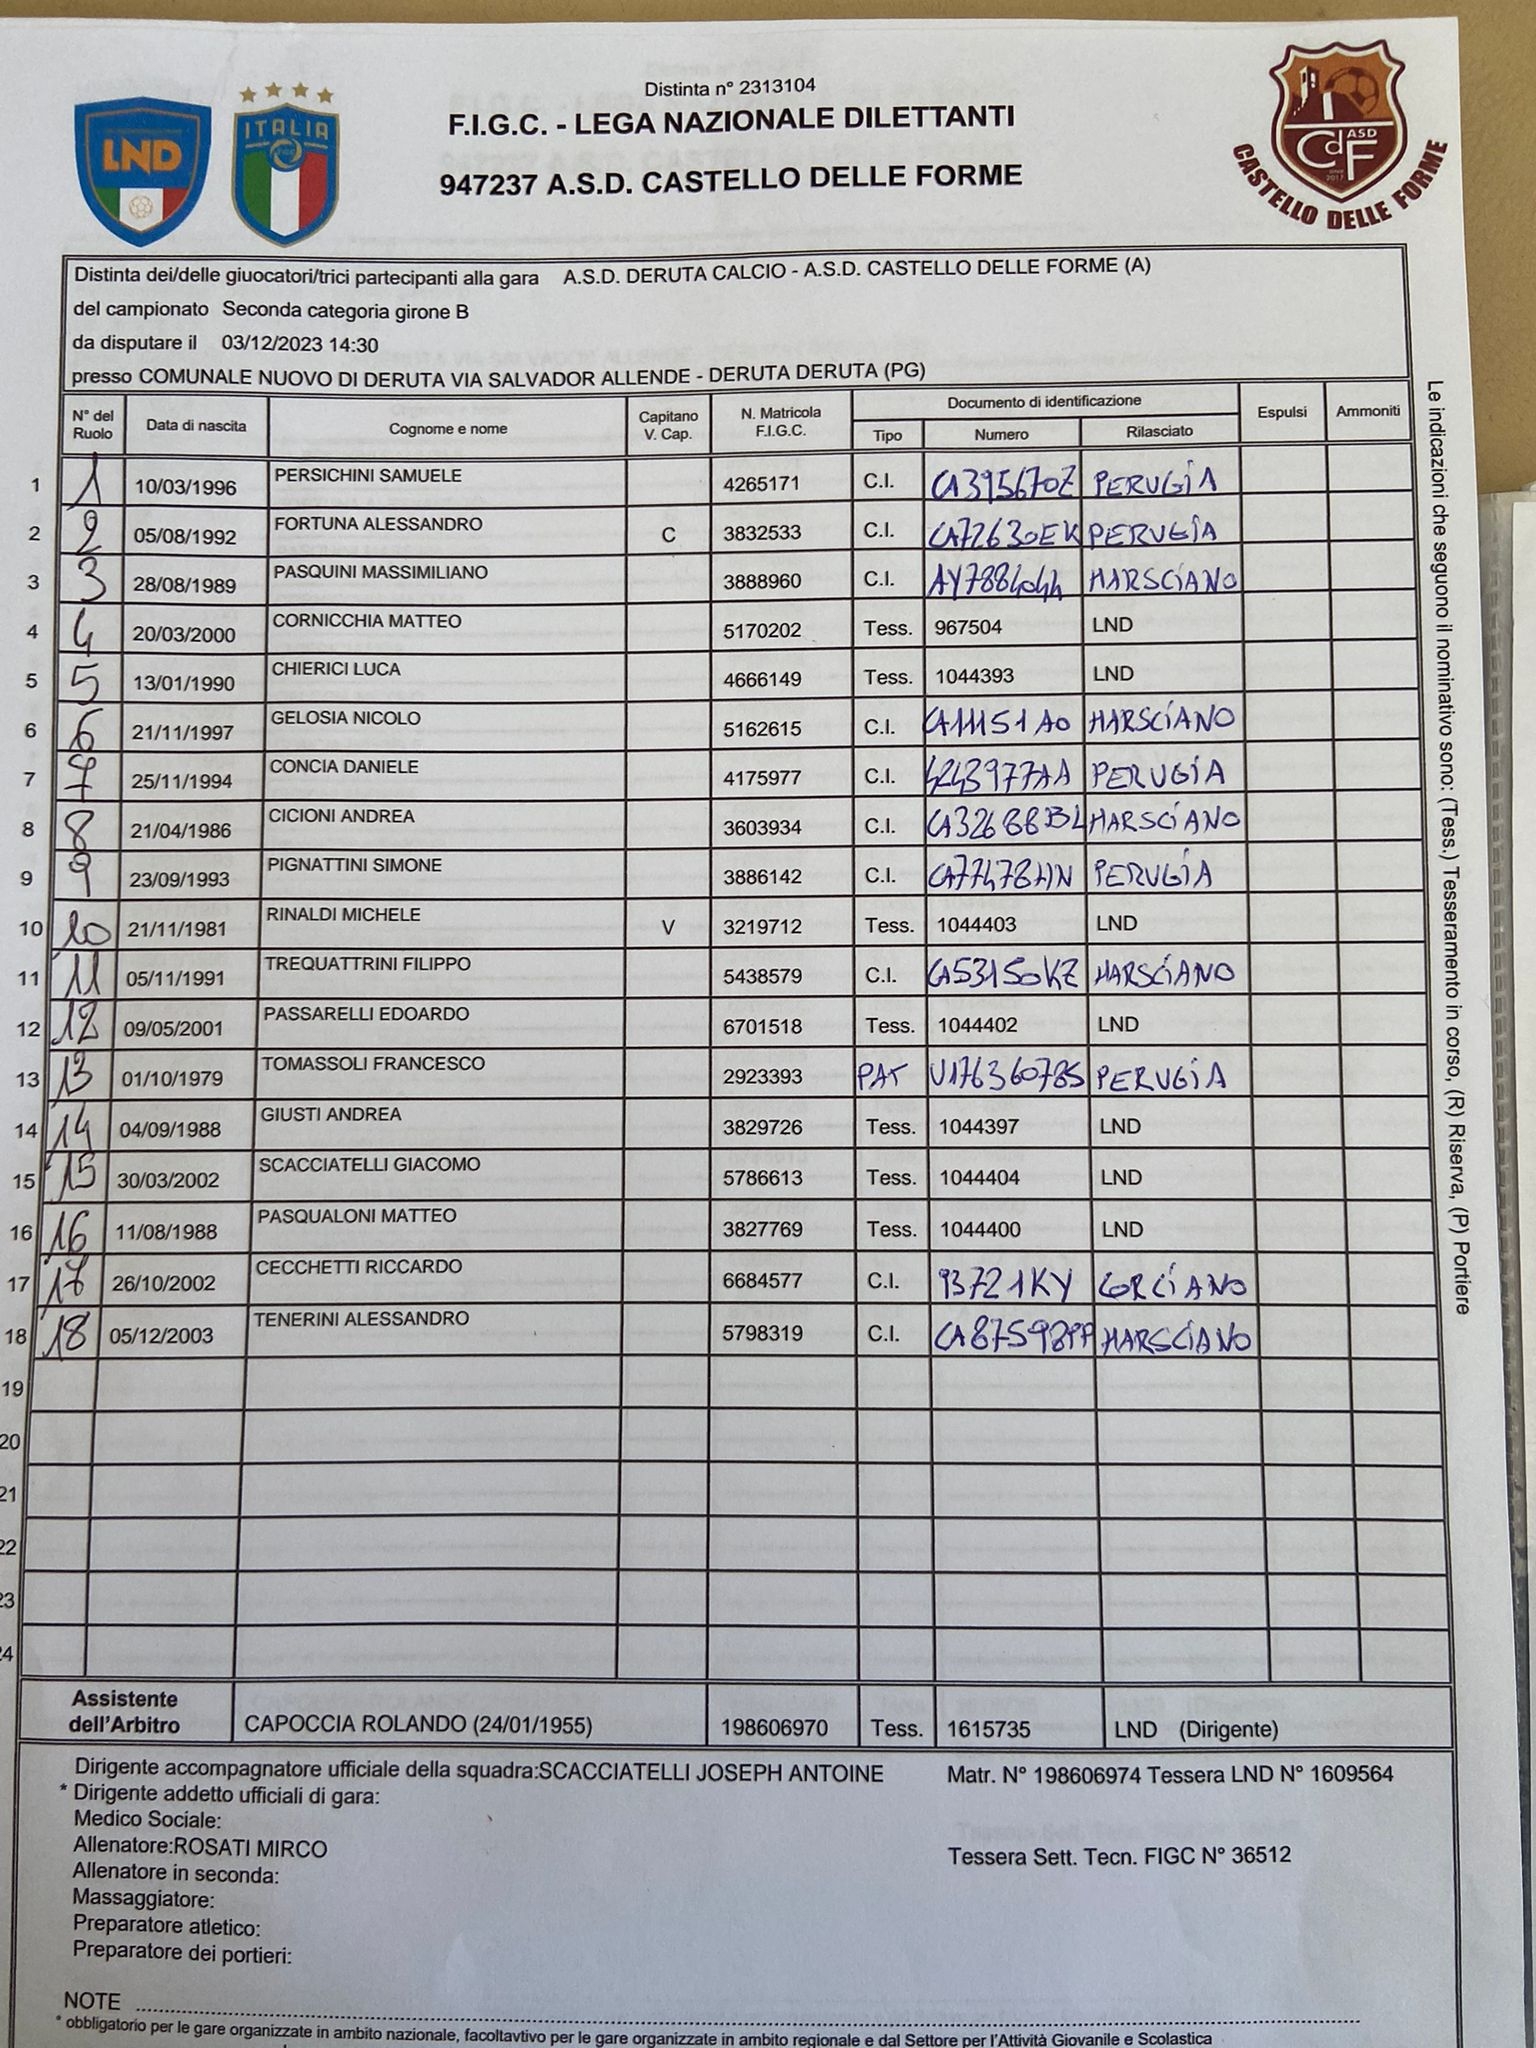 Distinta n° 2313104
F.I.G.C. - LEGA NAZIONALE DILETTANTI
947237 A.S.D. CASTELLO DELLE FORME
LND
ITALIA
ASD
CdF
2017
CASTELLO DELLE FORME
Distinta dei/delle giuocatori/trici partecipanti alla gara A.S.D. DERUTA CALCIO - A.S.D. CASTELLO DELLE FORME (A)
del campionato Seconda categoria girone B
da disputare il 03/12/2023 14:30
presso COMUNALE NUOVO DI DERUTA VIA SALVADOR ALLENDE - DERUTA DERUTA (PG)
N° del Ruolo Data di nascita Cognome e nome Capitano V. Cap. N. Matricola F.I.G.C. Documento di identificazione Espulsi Ammoniti
Tipo Numero Rilasciato
1 1 10/03/1996 PERSICHINI SAMUELE 4265171 C.I. PERUGIA
2 2 05/08/1992 FORTUNA ALESSANDRO C 3832533 C.I. CA72630EK PERUGIA
3 3 28/08/1989 PASQUINI MASSIMILIANO 3888960 C.I. MARSCIANO
4 4 20/03/2000 CORNICCHIA MATTEO 5170202 Tess. 967504 LND
5 5 13/01/1990 CHIERICI LUCA 4666149 Tess. 1044393 LND
6 6 21/11/1997 GELOSIA NICOLO 5162615 C.I. MARSCIANO
7 7 25/11/1994 CONCIA DANIELE 4175977 C.I. PERUGIA
8 8 21/04/1986 CICIONI ANDREA 3603934 C.I. CA32688BL MARSCIANO
9 9 23/09/1993 PIGNATTINI SIMONE 3886142 C.I. CA77478HN PERUGIA
10 10 21/11/1981 RINALDI MICHELE V 3219712 Tess. 1044403 LND
11 11 05/11/1991 TREQUATTRINI FILIPPO 5438579 C.I. CA53150KZ MARSCIANO
12 12 09/05/2001 PASSARELLI EDOARDO 6701518 Tess. 1044402 LND
13 13 01/10/1979 TOMASSOLI FRANCESCO 2923393 PAT PERUGIA
14 14 04/09/1988 GIUSTI ANDREA 3829726 Tess. 1044397 LND
15 15 30/03/2002 SCACCIATELLI GIACOMO 5786613 Tess. 1044404 LND
16 16 11/08/1988 PASQUALONI MATTEO 3827769 Tess. 1044400 LND
17 17 26/10/2002 CECCHETTI RICCARDO 6684577 C.I. 93721KY CORCIANO
18 18 05/12/2003 TENERINI ALESSANDRO 5798319 C.I. CA87598PP MARSCIANO
19
20
21
22
23
24
Assistente dell'Arbitro CAPOCCIA ROLANDO (24/01/1955) 198606970 Tess. 1615735 LND (Dirigente)
Dirigente accompagnatore ufficiale della squadra:SCACCIATELLI JOSEPH ANTOINE Matr. N° 198606974 Tessera LND N° 1609564
* Dirigente addetto ufficiali di gara:
Medico Sociale:
Allenatore:ROSATI MIRCO Tessera Sett. Tecn. FIGC N° 36512
Allenatore in seconda:
Massaggiatore:
Preparatore atletico:
Preparatore dei portieri:
NOTE
* obbligatorio per le gare organizzate in ambito nazionale, facoltavtivo per le gare organizzate in ambito regionale e dal Settore per l'Attività Giovanile e Scolastica
Le indicazioni che seguono il nominativo sono: (Tess.) Tesseramento in corso, (R) Riserva, (P) Portiere